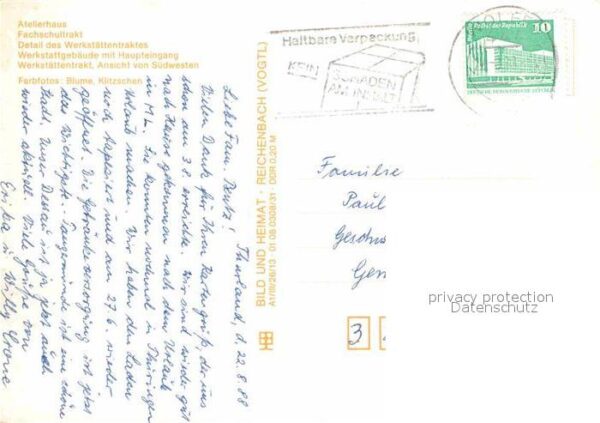 Atelierhaus
Fachschultrakt
Detail des Werkstättentraktes
Werkstattgebäude mit Haupteingang
Werkstättentrakt, Ansicht von Südwesten
Farbfotos: Blume, Klitzschen
Thurland, d. 22.8.88
Liebe Fam. !
Vielen Dank für Ihren Kartengruß, der uns
schon am 3.8. erreichte. Wir sind wieder gut
nach Hause gekommen nach dem Urlaub
in M.L. Sie konnten nochmal in Thüringen
Urlaub machen. Wir haben den Laden
noch tapeziert und am 27.6. wieder
geöffnet. Die Getränkeversorgung ist jetzt
das Wichtigste. Tangermünde ist eine schöne
Stadt. Unser Dessau ist ja jetzt auch
wieder aktuell. Viele Grüße von
Erika u. Willy
BILD UND HEIMAT · REICHENBACH (VOGTL)
A1/III/26/13 01 08 0308/31 · DDR 0,20 M
Haltbare Verpackung
KEIN SCHADEN
AM INHALT
Palast der Republik 10
DEUTSCHE DEMOKRATISCHE REPUBLIK
Familie
Paul
Geschw
Gen
3
privacy protection
Datenschutz